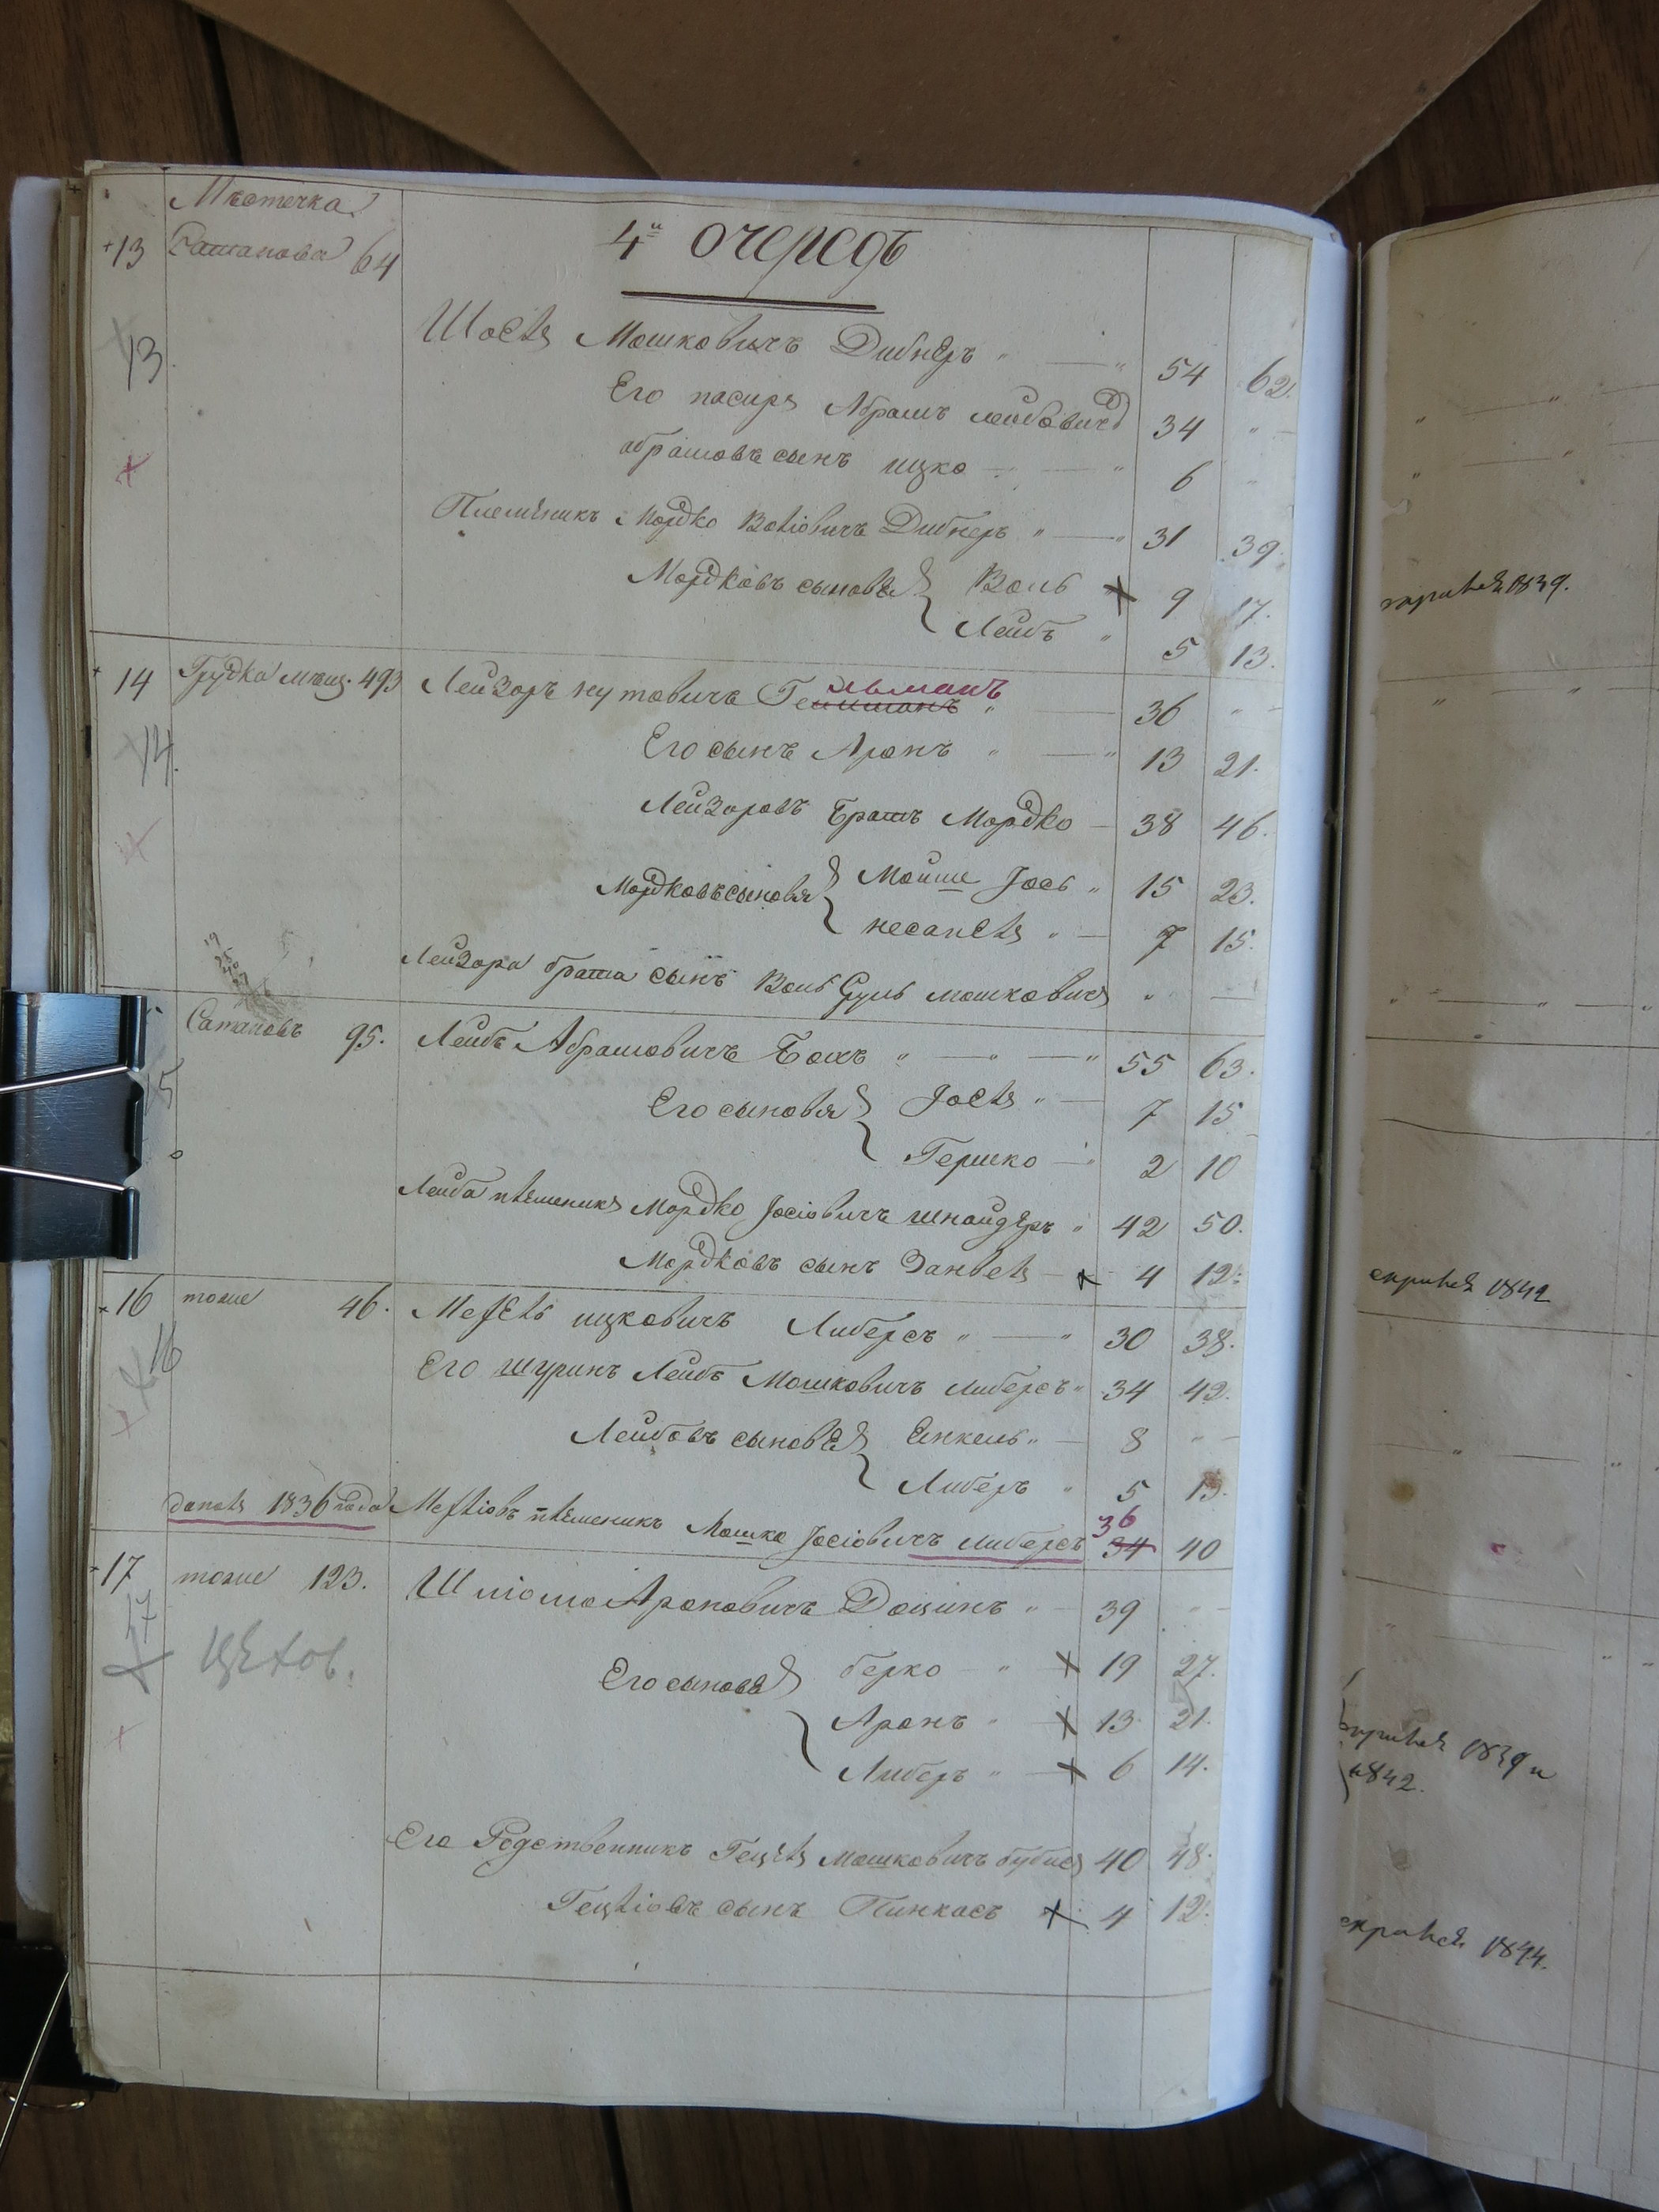 Мѣстечка
13 Сатанова 64
4й очередь
13
Мошковичъ Дибнеръ 54 62
Его пасирб Абрамъ Лейбович 34
абрамовъ сынъ ицко 6
Племѣникъ Мордко Волiовичъ Дибнеръ 31 39
Мордковъ сыновья Воль 9 17.
Лейбъ 5 13.
14 Грудка мѣщ. 493 Лейзоръ нутовичъ Гельманъ 36
14. Его сынъ Аронъ 13 21.
Лейзоровъ братъ Мордко 38 46.
Мордковъ сыновья Мойше Іось 15 23.
7 15.
Лейзора брата сынъ Воль Сруль мошкович
Сатановъ 95. Лейбъ Абрамовичъ Бокъ 55 63.
15 Его сыновя Іосѣл 7 15
Гершко 2 10
Лейба племеник Мордко Іосiовичъ шнайдеръ 42 50.
Мордковъ сынъ Занвел 4 12.
16 тоже 46. ицковичъ Либерсъ 30 38.
16 Его шуринъ Лейбъ Мошковичъ либерсъ 34 42.
Лейбовъ сыновья Енкель 8
Либеръ 5 13.
1836 года племеникъ Мошко Іосiовичъ либерсъ 34 36 40
17 тоже 123. Шліома Ароновичъ 39
17
Его сыновья берко 19 27.
Аронъ 13 21.
Либеръ 6 14.
Его Родственникъ Гецел мошковичъ 40 48.
Гецлiовъ сынъ Пинкасъ 4 12.
1839.
1842
1839 и
1842.
1844.